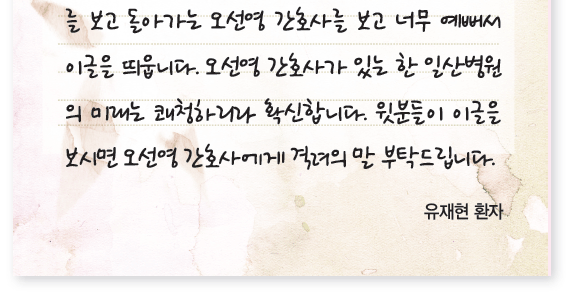 를 보고 돌아가는 오선영 간호사를 보고 너무 예뻐서
이글을 띄웁니다. 오선영 간호사가 있는 한 일산병원
의 미래는 쾌청하리라 확신합니다. 윗분들이 이글을
보시면 오선영 간호사에게 격려의 말 부탁드립니다.
유재현 환자